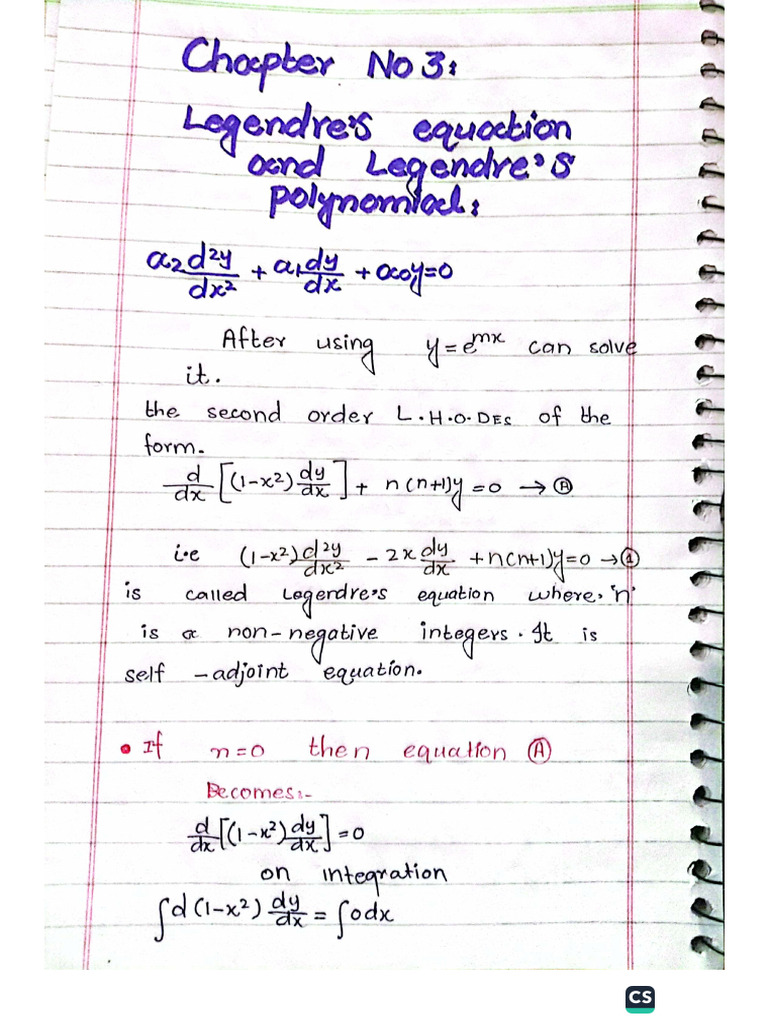 Chapter No 3:
Legendre's equation
and Legendre's
polynomial:
a₂ d²y/dx² + a₁ dy/dx + a₀y=0
After using y=e^mx can solve
it.
the second order L.H.O.DEs of the
form.
d/dx [(1-x²) dy/dx] + n(n+1)y=0 → Ⓐ
i.e (1-x²) d²y/dx² - 2x dy/dx + n(n+1)y=0 → ①
is called Legendre's equation where, 'n'
is a non-negative integers. It is
self-adjoint equation.
• If n=0 then equation Ⓐ
Becomes:-
d/dx [(1-x²) dy/dx] =0
on integration
∫d(1-x²) dy/dx = ∫0dx
CS